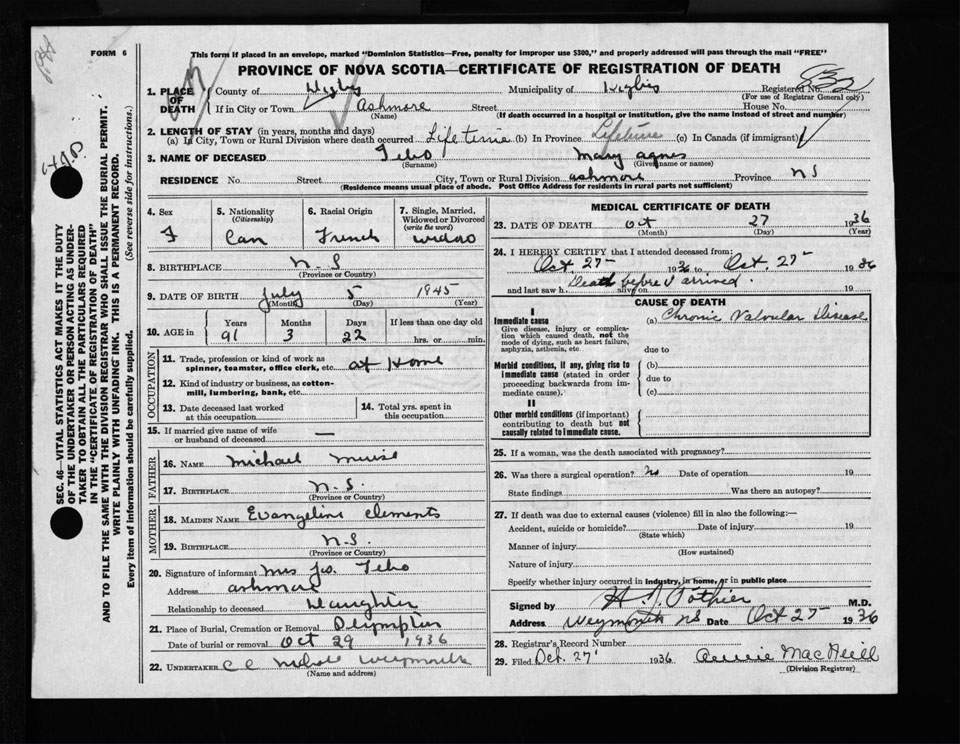 FORM 6
This form if placed in an envelope, marked "Dominion Statistics—Free, penalty for improper use $300," and properly addressed will pass through the mail "FREE"
PROVINCE OF NOVA SCOTIA—CERTIFICATE OF REGISTRATION OF DEATH
1. PLACE OF DEATH County of Digby Municipality of Digby Registered No.
(For use of Registrar General only)
If in City or Town Ashmore Street House No.
(Name) (If death occurred in a hospital or institution, give the name instead of street and number)
2. LENGTH OF STAY (in years, months and days)
(a) In City, Town or Rural Division where death occurred Lifetime (b) In Province Lifetime (c) In Canada (if immigrant)
3. NAME OF DECEASED Tebo Mary Agnes
(Surname) (Given name or names)
RESIDENCE No. Street City, Town or Rural Division Ashmore Province NS
(Residence means usual place of abode. Post Office Address for residents in rural parts not sufficient)
SEC. 46—VITAL STATISTICS ACT MAKES IT THE DUTY
OF THE UNDERTAKER OR PERSON ACTING AS UNDER-
TAKER TO OBTAIN ALL THE PARTICULARS REQUIRED
IN THE "CERTIFICATE OF REGISTRATION OF DEATH"
AND TO FILE THE SAME WITH THE DIVISION REGISTRAR WHO SHALL ISSUE THE BURIAL PERMIT.
WRITE PLAINLY WITH UNFADING INK. THIS IS A PERMANENT RECORD.
Every item of information should be carefully supplied. (See reverse side for instructions.)
4. Sex 5. Nationality 6. Racial Origin 7. Single, Married,
(Citizenship) Widowed or Divorced
(write the word)
F Can French widow
8. BIRTHPLACE N.S
(Province or Country)
9. DATE OF BIRTH July 5 1845
(Month) (Day) (Year)
10. AGE in Years Months Days If less than one day old
91 3 22 hrs. or min.
OCCUPATION
11. Trade, profession or kind of work as
spinner, teamster, office clerk, etc. at Home
12. Kind of industry or business, as cotton-
mill, lumbering, bank, etc.
13. Date deceased last worked
at this occupation
14. Total yrs. spent in
this occupation
15. If married give name of wife
or husband of deceased —
FATHER
16. NAME Michael Muise
17. BIRTHPLACE N.S.
(Province or Country)
MOTHER
18. MAIDEN NAME Evangeline Clements
19. BIRTHPLACE N.S.
(Province or Country)
20. Signature of informant Mrs Jos. Tebo
Address Ashmore
Relationship to deceased Daughter
21. Place of Burial, Cremation or Removal Plympton
Date of burial or removal Oct 29 1936
22. UNDERTAKER Weymouth
(Name and address)
MEDICAL CERTIFICATE OF DEATH
23. DATE OF DEATH Oct 27 1936
(Month) (Day) (Year)
24. I HEREBY CERTIFY that I attended deceased from:
Oct 27 1936 to Oct. 27 1936
and last saw h alive on Death before I arrived. 19
CAUSE OF DEATH
I
Immediate cause (a) Chronic Valvular Disease
Give disease, injury or complica-
tion which caused death, not the
mode of dying, such as heart failure,
asphyxia, asthenia, etc. due to
Morbid conditions, if any, giving rise to
immediate cause (stated in order
proceeding backwards from im-
mediate cause).
(b)
due to
(c)
II
Other morbid conditions (if important)
contributing to death but not
causally related to immediate cause.
25. If a woman, was the death associated with pregnancy?
26. Was there a surgical operation? No Date of operation 19
State findings Was there an autopsy?
27. If death was due to external causes (violence) fill in also the following:—
Accident, suicide or homicide? Date of injury 19
(State which)
Manner of injury
(How sustained)
Nature of injury
Specify whether injury occurred in industry, in home, or in public place
Signed by Pothier M.D.
Address Weymouth NS Date Oct 27 1936
28. Registrar's Record Number
29. Filed Oct. 27 1936 Annie MacNeill
(Division Registrar)